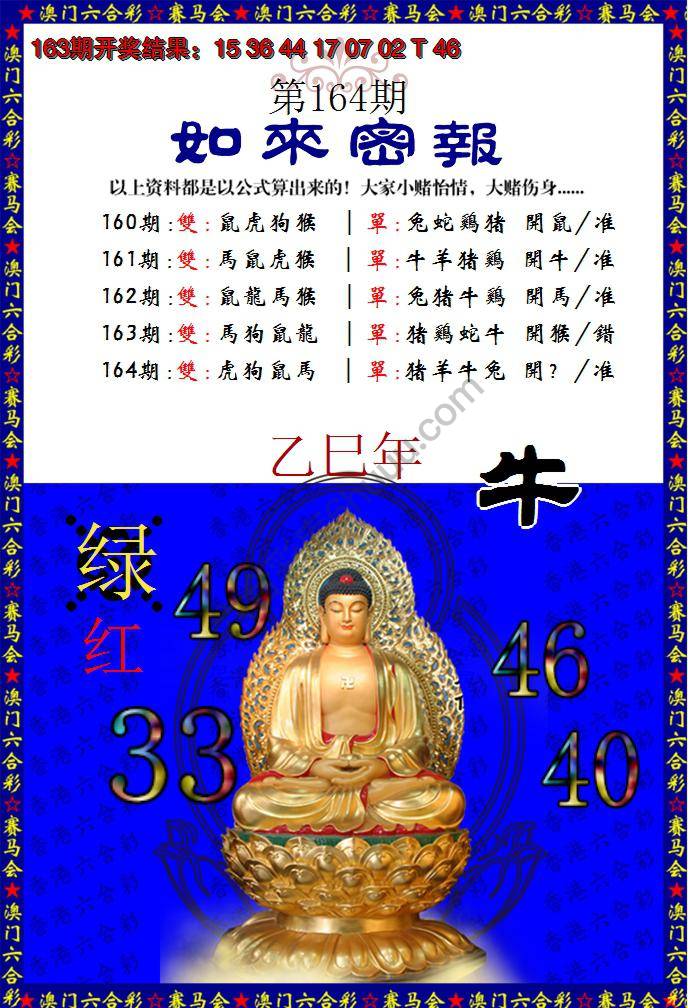 ★澳门六合彩☆赛马会★澳门六合彩☆赛马会★澳门六合彩☆赛马会★
163期开奖结果：15 36 44 17 07 02 T 46
第164期
如來密報
以上资料都是以公式算出来的！大家小赌怡情，大赌伤身......
160期:雙:鼠虎狗猴 |單:兔蛇鷄猪 開鼠/准
161期:雙:馬鼠虎猴 |單:牛羊猪鷄 開牛/准
162期:雙:鼠龍馬猴 |單:兔猪牛鷄 開馬/准
163期:雙:馬狗鼠龍 |單:猪鷄蛇牛 開猴/錯
164期:雙:虎狗鼠馬 |單:猪羊牛兔 開？/准
乙巳年
牛
绿
红
49
46
33
40
香港六合彩
★澳门六合彩☆赛马会★澳门六合彩☆赛马会★澳门六合彩☆赛马会★